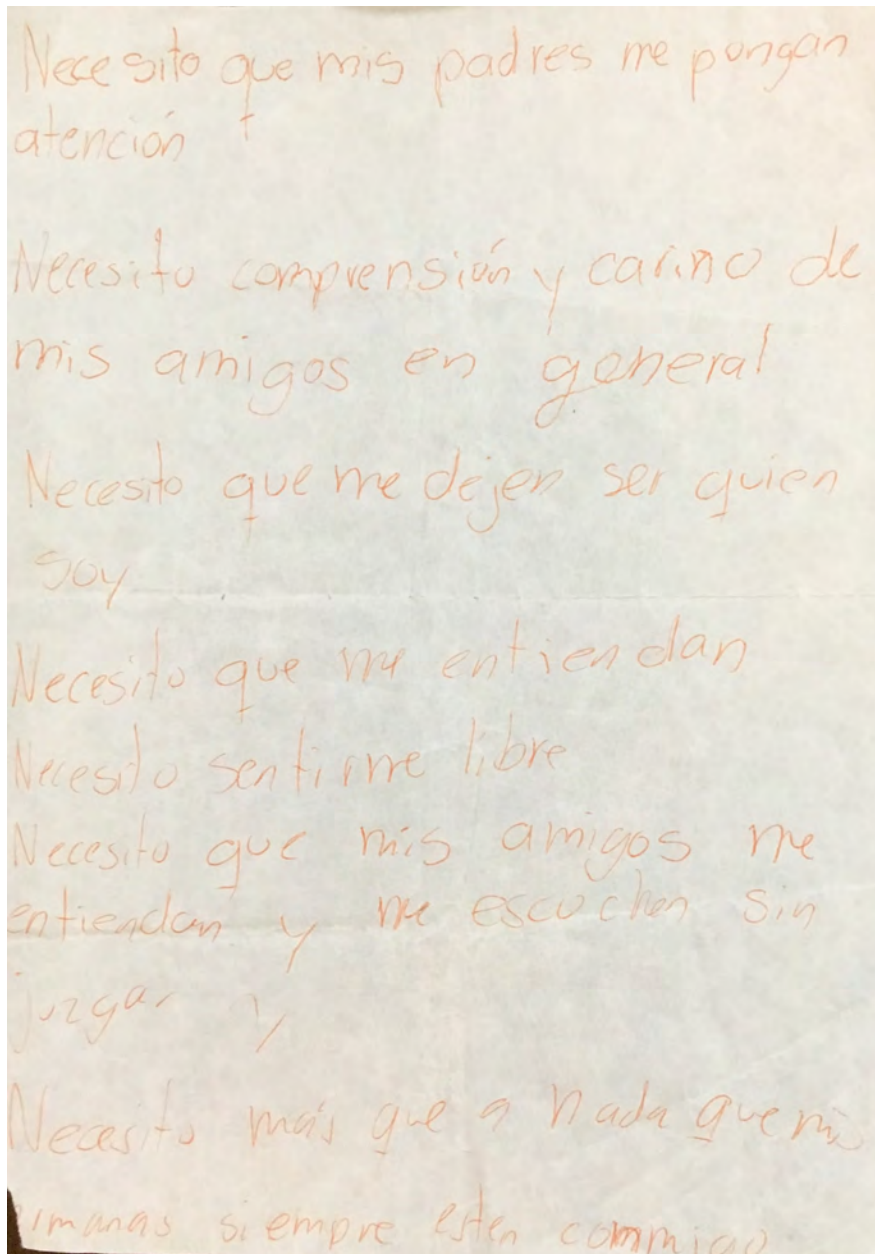 Necesito que mis padres me pongan
atención
Necesito comprensión y carino de
mis amigos en general
Necesito que me dejen ser quien
soy
Necesito que me entiendan
Necesito sentirme libre
Necesito que mis amigos me
entiendan y me escuchen sin
juzgar y
Necesito más que a nada que mis
siempre esten commigo